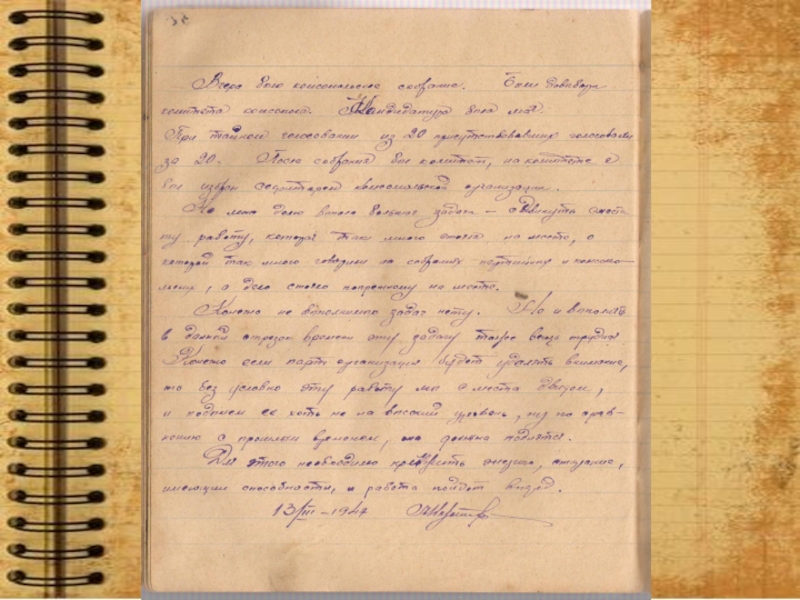 Вчера было комсомольское собрание. Были довыборы
комитета комсомола. Кандидатура была моя.
При тайном голосовании из 20 присутствовавших голосовали
за 20. После собрания был комитет, на комитете я
был избран секретарем комсомольской организации.
На мою долю выпало большая задача – сдвинуть с места
ту работу, которая так много стояла на месте, о
которой так много говорили на собраниях партийных и комсомо-
льских, а дело стояло попрежнему на месте.
Конечно не выполнимых задач нету. Но и выполнить
в данный отрезок времени эту задачу тоже вещь трудная.
Конечно если парт организация будет уделять внимание,
то без условно эту работу мы с места двигаем,
и поднимем ее хоть не на высокий уровень, ну по срав-
нению с прошлым временем, она должна поднятся.
Для этого необходимо энергию, старание,
имеющии способности, и работа пойдет вперед.
13/III – 1947